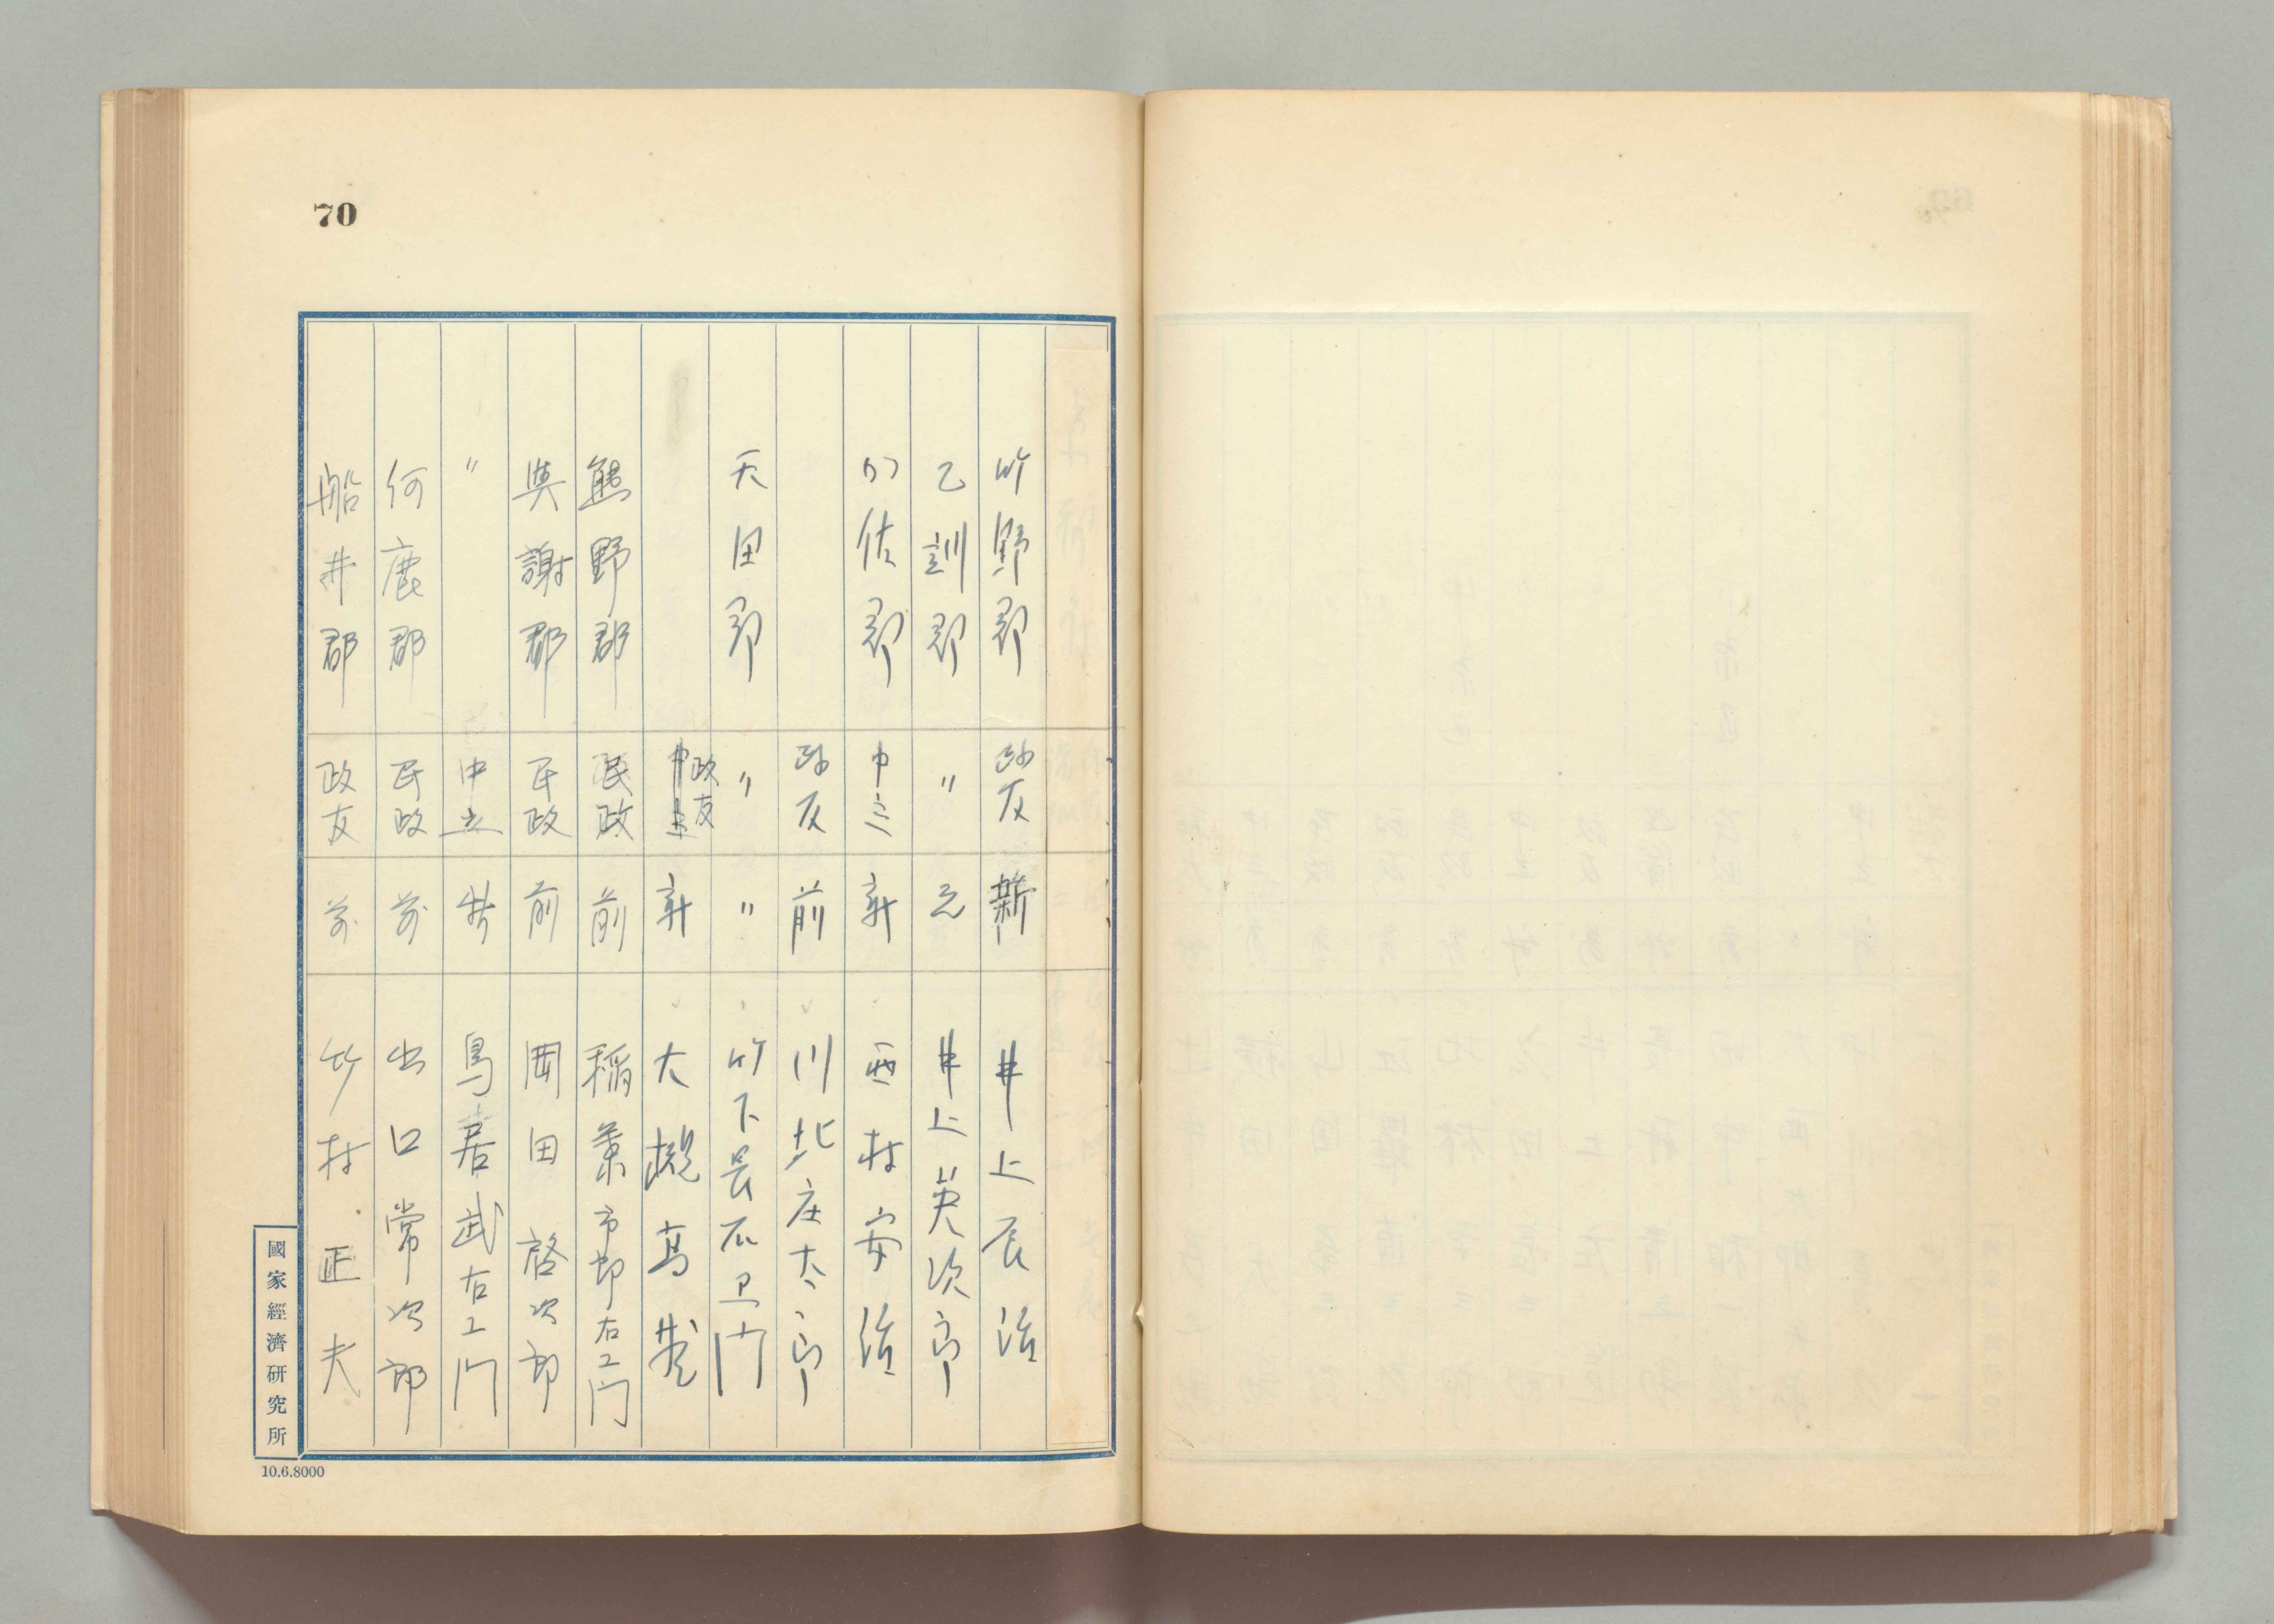 70
竹野郡 政友 新 井上辰治
乙訓郡 〃 元 井上英次郎
加佐郡 中立 新 西村安治
政友 前 川北庄太郎
天田郡 〃 〃 竹下呉左卫门
中立 政友 新 大槻高蔵
熊野郡 民政 前 稲葉市郎右エ门
與謝郡 民政 前 岡田啓次郎
〃 中立 新 鳥居武右エ门
何鹿郡 民政 前 出口常次郎
船井郡 政友 前 竹村正夫
國家經濟研究所
10.6.8000